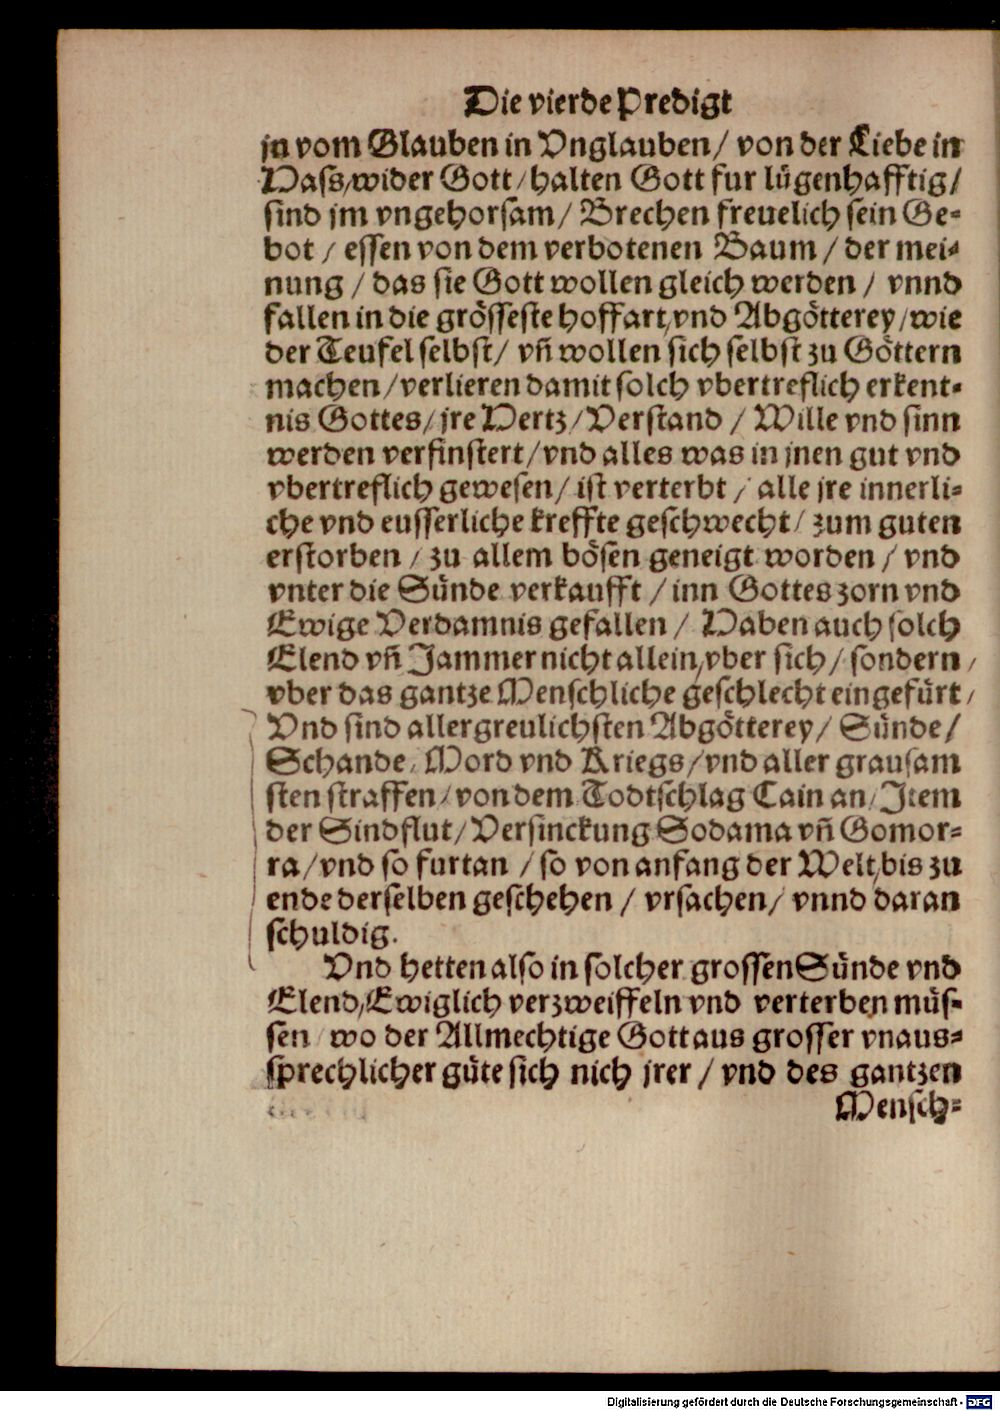 Die vierde Predigt
jn vom Glauben in Vnglauben/ von der Liebe in
Hass/wider Gott/halten Gott fur lügenhafftig/
sind jm vngehorsam/ Brechen freuelich sein Ge-
bot / essen von dem verbotenen Baum / der mei-
nung / das sie Gott wollen gleich werden / vnnd
fallen in die grösseste hoffart/vnd Abgötterey/wie
der Teufel selbst/ vñ wollen sich selbst zu Göttern
machen/verlieren damit solch vbertreflich erkent-
nis Gottes/jre Hertz/Verstand / Wille vnd sinn
werden verfinstert/vnd alles was in jnen gut vnd
vbertreflich gewesen/ ist verterbt / alle jre innerli-
che vnd eusserliche kreffte geschwecht/ zum guten
erstorben / zu allem bösen geneigt worden / vnd
vnter die Sünde verkaufft / inn Gottes zorn vnd
Ewige Verdamnis gefallen / Haben auch solch
Elend vñ Jammer nicht allein/vber sich/ sondern /
vber das gantze Menschliche geschlecht eingefürt/
Vnd sind allergreulichsten Abgötterey/ Sünde/
Schande/ Mord vnd Kriegs/vnd aller grausam
sten straffen/von dem Todtschlag Cain an/Item
der Sindflut/Versinckung Sodama vñ Gomor-
ra/vnd so furtan /so von anfang der Welt/bis zu
ende derselben geschehen / vrsachen/ vnnd daran
schuldig.
Vnd hetten also in solcher grossen Sünde vnd
Elend/Ewiglich verzweiffeln vnd verterben müs-
sen/ wo der Allmechtige Gott aus grosser vnaus-
sprechlicher güte sich nich jrer / vnd des gantzen
Mensch-
Digitalisierung gefördert durch die Deutsche Forschungsgemeinschaft - DFG